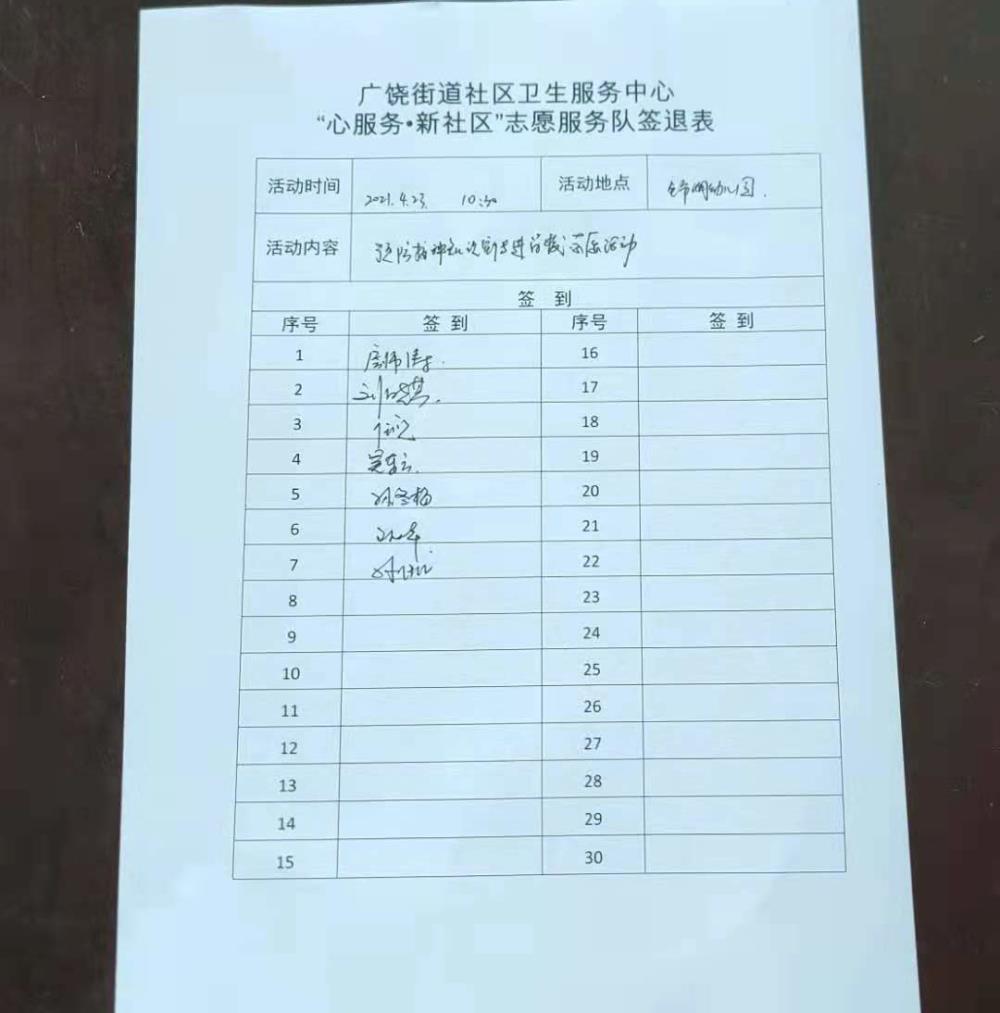 广饶街道社区卫生服务中心
“心服务•新社区”志愿服务队签退表
活动时间 2021.4.23. 10:30 活动地点 幼儿园.
活动内容 活动
签 到
序号 签 到 序号 签 到
1 16
2 17
3 18
4 19
5 孙冬梅 20
6 21
7 22
8 23
9 24
10 25
11 26
12 27
13 28
14 29
15 30